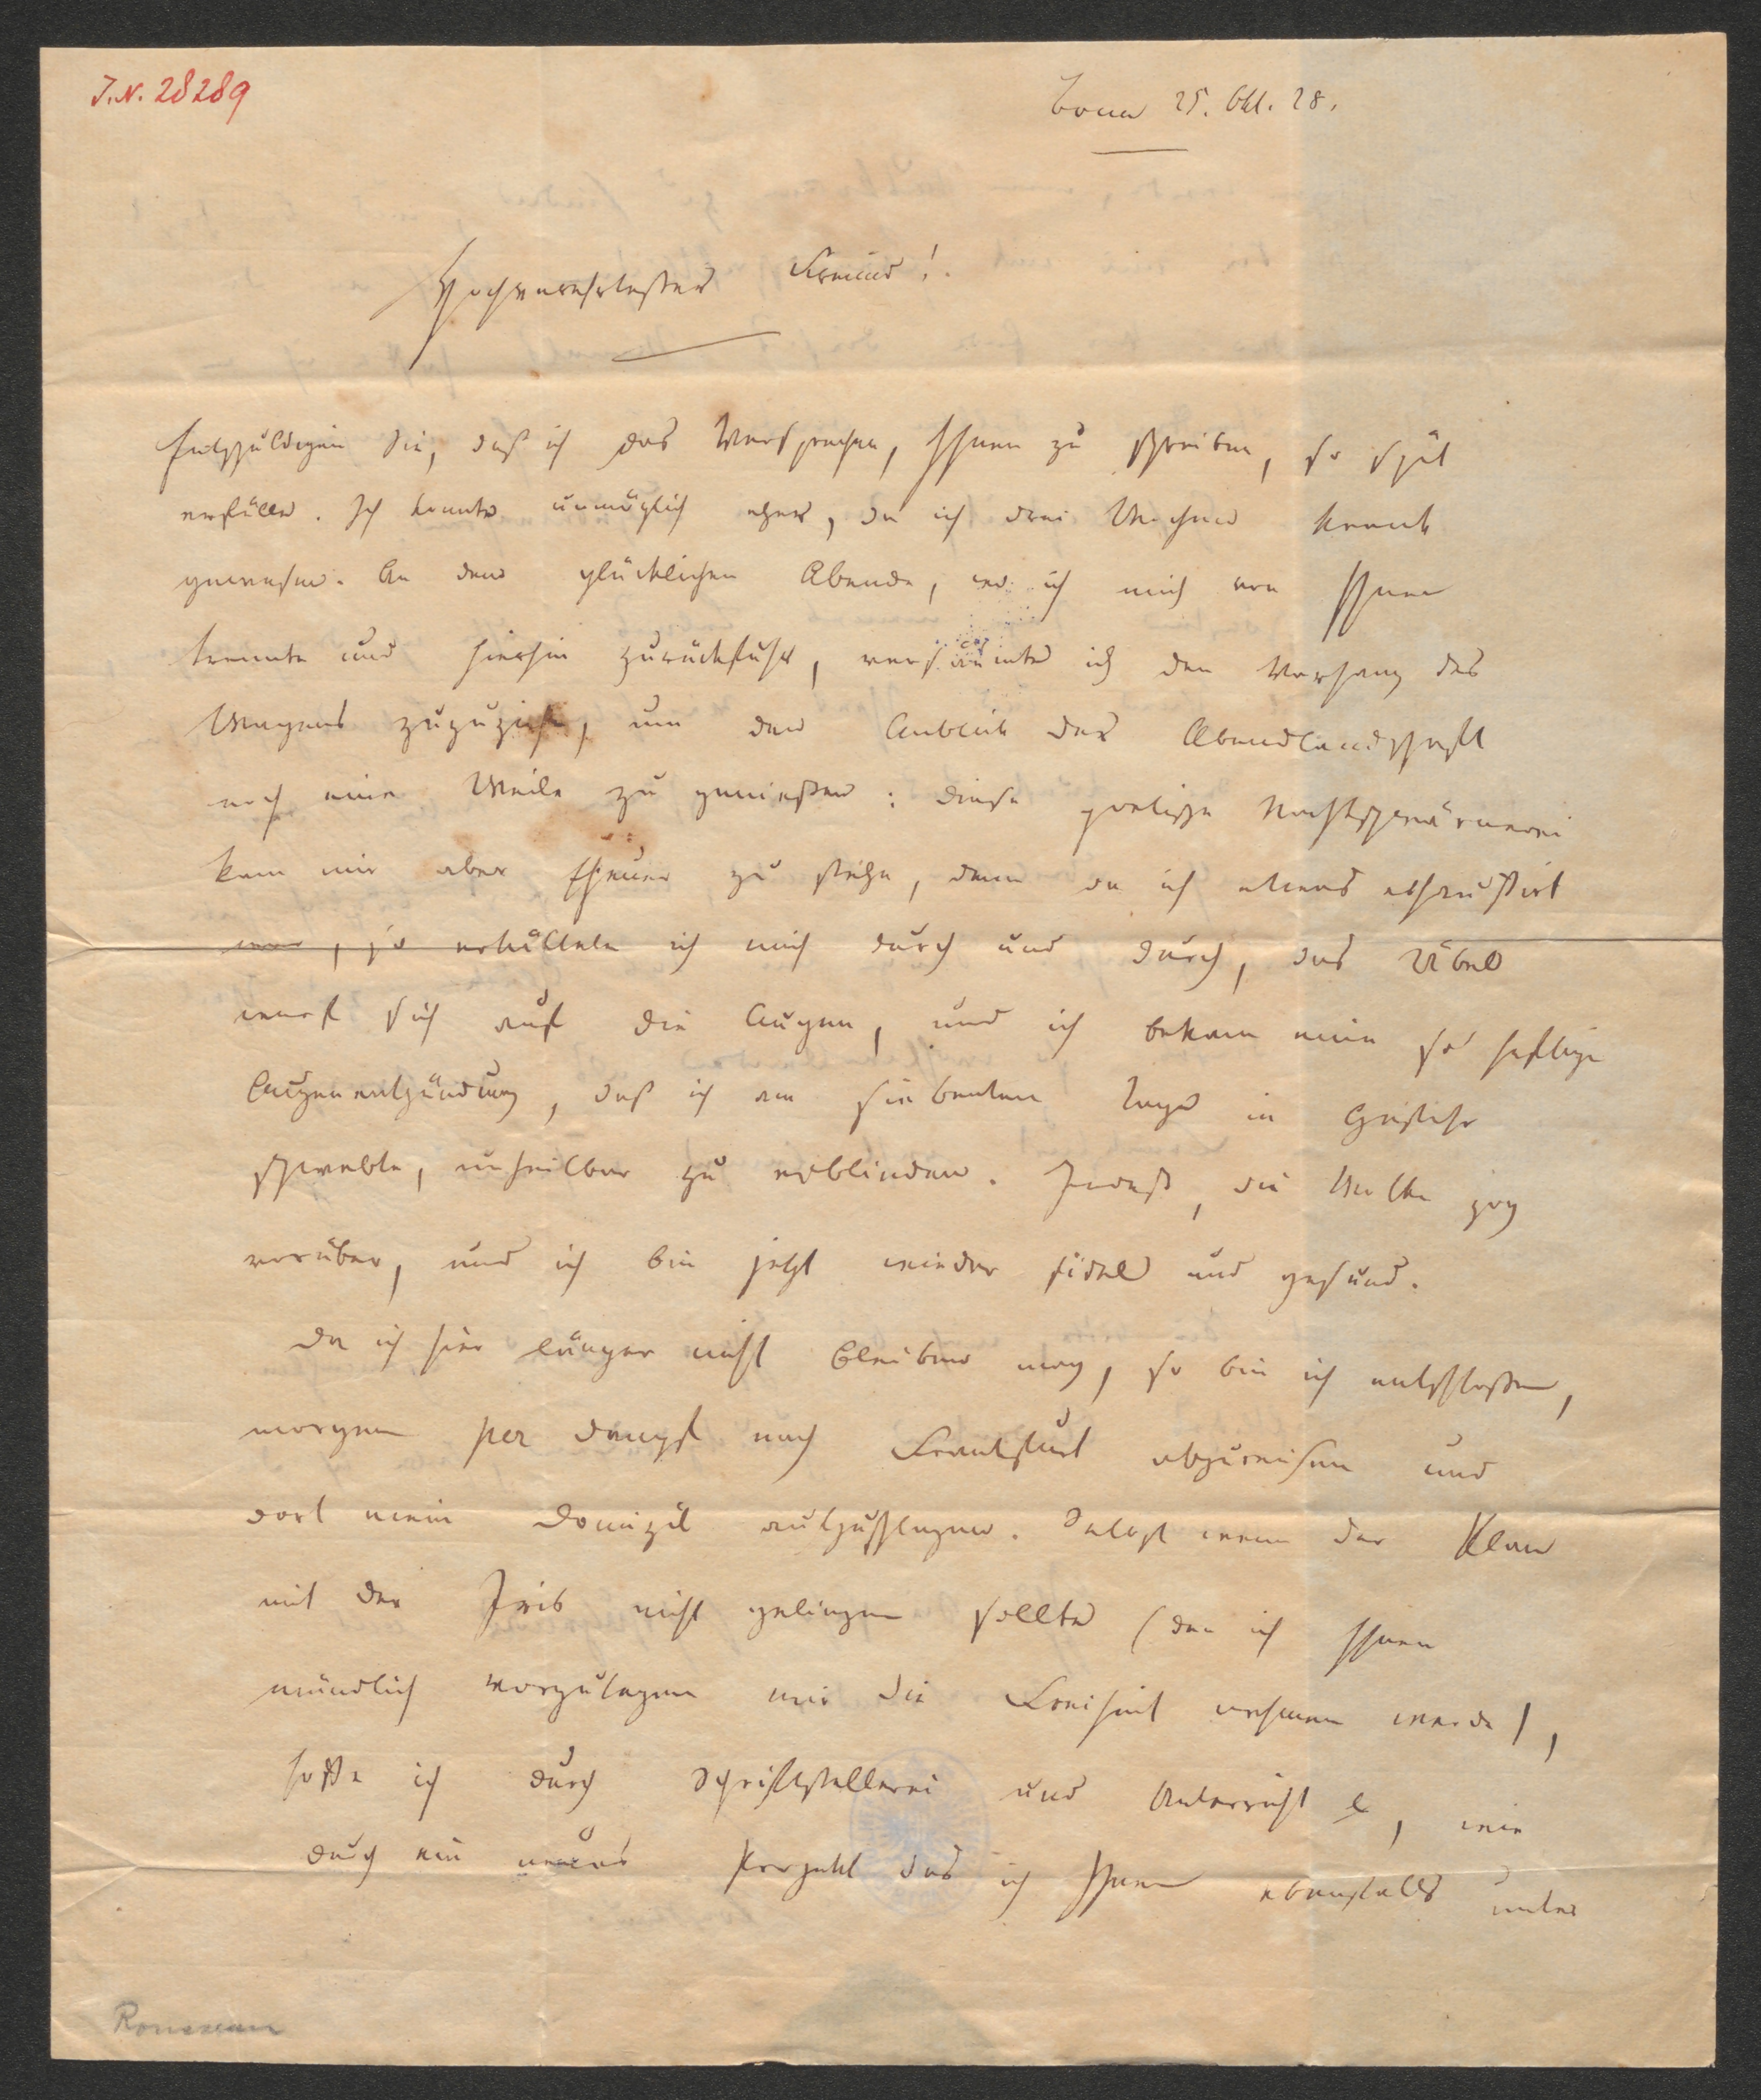 J.N. 28289
Bonn 25. Okt. 28.
Hochverehrtester Freund!
Entschuldigen Sie, daß ich das Versprechen, Ihnen zu schreiben, so spät
erfülle. Ich konnte unmöglich eher, da ich drei Wochen krank
gewesen. An dem glücklichen Abende, wo ich mich von Ihnen
trennte und hierhin zurückfuhr, versäumte ich den Vorhang des
Wagens zuzuziehn, um den Anblick der Abendlandschaft
noch eine Weile zu genießen: diese poetische Nachtschwärmerei
kam mir aber theuer zu stehn, denn da ich etwas echauffirt
war, so erkältete ich mich durch und durch, das Übel
warf sich auf die Augen, und ich bekam eine so heftige
Augenentzündung, daß ich am siebenten Tage in Gefahr
schwebte, unheilbar zu erblinden. Indeß, die Wolke zog
vorüber, und ich bin jetzt wieder fidel und gesund.
Da ich hier länger nicht bleiben mag, so bin ich entschlossen,
morgen per Dampf nach Frankfurt abzureisen und
dort mein Domizil aufzuschlagen. Selbst wenn der Plan
mit der Iris nicht gelingen sollte (den ich Ihnen
mündlich vorzulegen mir die Freiheit nehmen werde),
hoffe ich durch Schriftstellerei und Unterricht, wie
durch ein neues Projekt das ich Ihnen ebenfalls unter
Rousseau